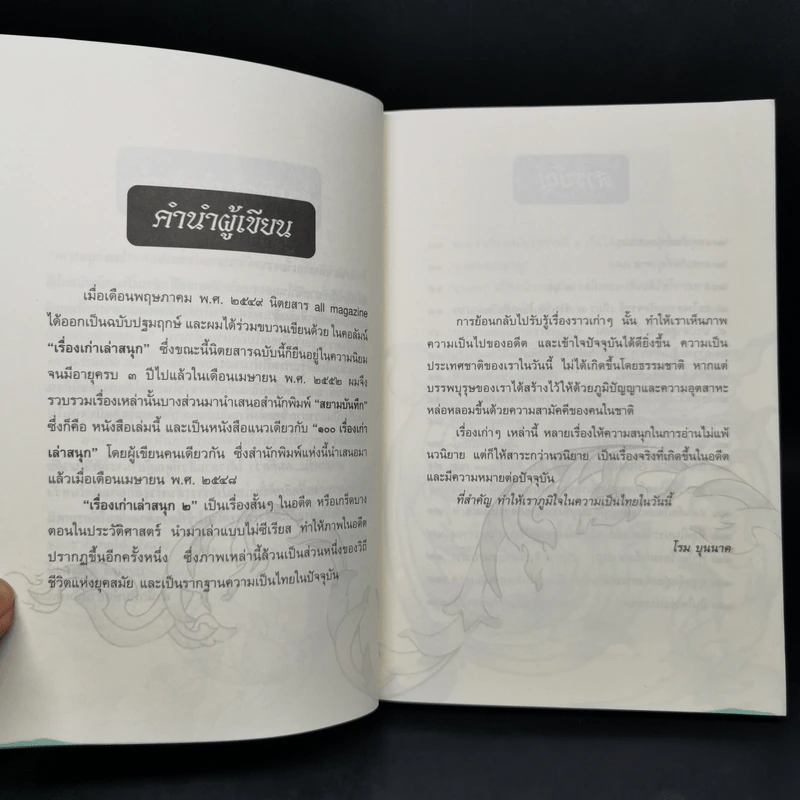 คำนำผู้เขียน
เมื่อเดือนพฤษภาคม พ.ศ. ๒๕๔๙ นิตยสาร all magazine
ได้ออกเป็นฉบับปฐมฤกษ์ และผมได้ร่วมขบวนเขียนด้วย ในคอลัมน์
“เรื่องเก่าเล่าสนุก” ซึ่งขณะนี้นิตยสารฉบับนี้ก็ยืนอยู่ในความนิยม
จนมีอายุครบ ๓ ปีไปแล้วในเดือนเมษายน พ.ศ. ๒๕๕๒ ผมจึง
รวบรวมเรื่องเหล่านั้นบางส่วนมานำเสนอสำนักพิมพ์ “สยามบันทึก”
ซึ่งก็คือ หนังสือเล่มนี้ และเป็นหนังสือแนวเดียวกับ “๑๐๐ เรื่องเก่า
เล่าสนุก” โดยผู้เขียนคนเดียวกัน ซึ่งสำนักพิมพ์แห่งนี้นำเสนอมา
แล้วเมื่อเดือนเมษายน พ.ศ. ๒๕๔๘
“เรื่องเก่าเล่าสนุก ๒” เป็นเรื่องสั้นๆ ในอดีต หรือเกร็ดบาง
ตอนในประวัติศาสตร์ นำมาเล่าแบบไม่ซีเรียส ทำให้ภาพในอดีต
ปรากฏขึ้นอีกครั้งหนึ่ง ซึ่งภาพเหล่านี้ล้วนเป็นส่วนหนึ่งของวิถี
ชีวิตแห่งยุคสมัย และเป็นรากฐานความเป็นไทยในปัจจุบัน
การย้อนกลับไปรับรู้เรื่องราวเก่าๆ นั้น ทำให้เราเห็นภาพ
ความเป็นไปของอดีต และเข้าใจปัจจุบันได้ดียิ่งขึ้น ความเป็น
ประเทศชาติของเราในวันนี้ ไม่ได้เกิดขึ้นโดยธรรมชาติ หากแต่
บรรพบุรุษของเราได้สร้างไว้ให้ด้วยภูมิปัญญาและความอุตสาหะ
หล่อหลอมขึ้นด้วยความสามัคคีของคนในชาติ
เรื่องเก่าๆ เหล่านี้ หลายเรื่องให้ความสนุกในการอ่านไม่แพ้
นวนิยาย แต่ก็ให้สาระกว่านวนิยาย เป็นเรื่องจริงที่เกิดขึ้นในอดีต
และมีความหมายต่อปัจจุบัน
ที่สำคัญ ทำให้เราภูมิใจในความเป็นไทยในวันนี้
โรม บุนนาค